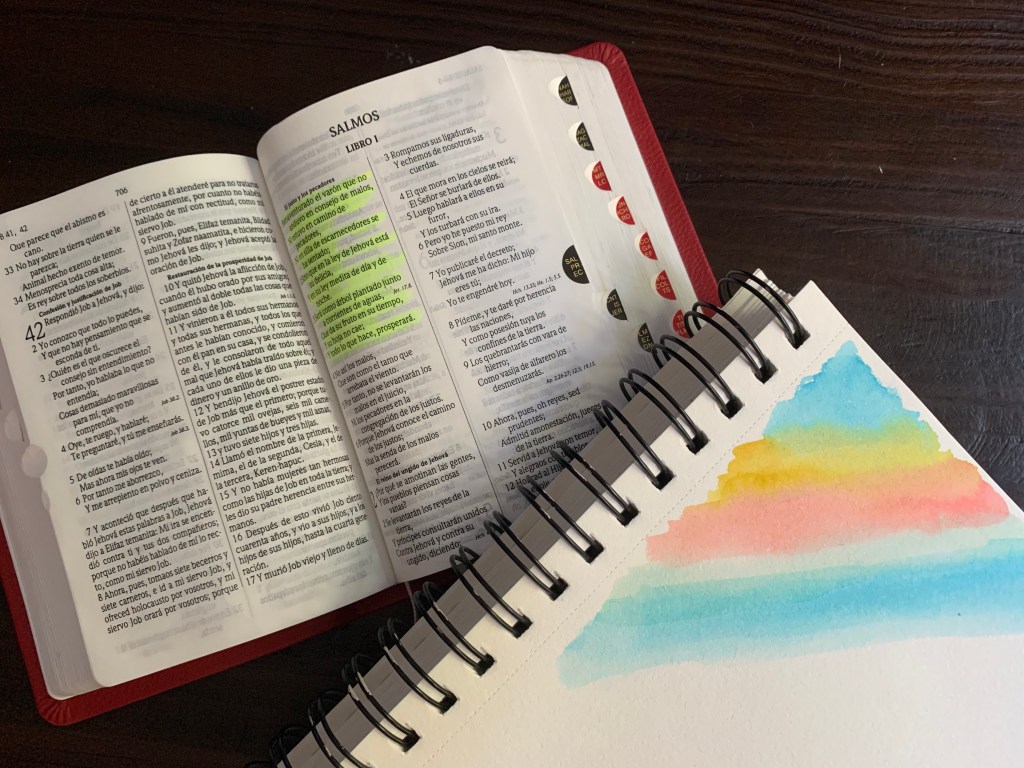 706
B 41, 42
Que parece que el abismo es
cano.
33 No hay sobre la tierra quien se le
parezca;
Animal hecho exento de temor.
34 Menosprecia toda cosa alta;
Es rey sobre todos los soberbios.
Confesión y justificación de Job
42 Respondió Job a Jehová, y dijo:
2 Yo conozco que todo lo puedes,
Y que no hay pensamiento que se
esconda de ti.
3 ¿Quién es el que oscurece el
consejo sin entendimiento?
Por tanto, yo hablaba lo que no
entendía;
Cosas demasiado maravillosas
para mí, que yo no
comprendía.
4 Oye, te ruego, y hablaré;
Te preguntaré, y tú me enseñarás.
5 De oídas te había oído;
Mas ahora mis ojos te ven.
6 Por tanto me aborrezco,
Y me arrepiento en polvo y ceniza.
7 Y aconteció que después que ha-
bló Jehová estas palabras a Job, Jehová
dijo a Elifaz temanita: Mi ira se encen-
dió contra ti y tus dos compañeros;
porque no habéis hablado de mí lo rec-
to, como mi siervo Job.
8 Ahora, pues, tomaos siete becerros y
siete carneros, e id a mi siervo Job, y
ofreced holocausto por vosotros, y mi
siervo Job orará por vosotros; porque
de cierto a él atenderé para no trataros
afrentosamente, por cuanto no habéis
hablado de mí con rectitud, como mi
siervo Job.
9 Fueron, pues, Elifaz temanita, Bildad
suhita y Zofar naamatita, e hicieron co-
mo Jehová les dijo; y Jehová aceptó la
oración de Job.
Restauración de la prosperidad de Job
10 Y quitó Jehová la aflicción de Job,
cuando él hubo orado por sus amigos;
y aumentó al doble todas las cosas que
habían sido de Job.
11 Y vinieron a él todos sus hermanos
y todas sus hermanas, y todos los que
antes le habían conocido, y comieron
con él pan en su casa, y se condolieron
de él, y le consolaron de todo aquel
mal que Jehová había traído sobre él; y
cada uno de ellos le dio una pieza de
dinero y un anillo de oro.
12 Y bendijo Jehová el postrer estado
de Job más que el primero; porque tuvo
catorce mil ovejas, seis mil came-
llos, mil yuntas de bueyes y mil asnas,
13 y tuvo siete hijos y tres hijas.
14 Llamó el nombre de la primera, Je-
mima, el de la segunda, Cesia, y el de
la tercera, Keren-hapuc.
15 Y no había mujeres tan hermosas
como las hijas de Job en toda la tierra; y
les dio su padre herencia entre sus her-
manos.
16 Después de esto vivió Job ciento
cuarenta años, y vio a sus hijos, y a los
hijos de sus hijos, hasta la cuarta gene-
17 Y murió Job viejo y lleno de días.
SALMOS
LIBRO I
y los pecadores
el varón que no
en consejo de malos,
en camino de
de escarnecedores se
en la ley de Jehová está
ley medita de día y de
árbol plantado junto
de aguas,
su fruto en su tiempo,
hoja no cae;
todo lo que hace, prosperará.
malos,
como el tamo que
el viento.
tanto, no se levantarán los
malos en el juicio,
pecadores en la
congregación de los justos.
Jehová conoce el camino
de los justos;
la senda de los malos
perecerá.
El reino del ungido de Jehová
qué se amotinan las gentes,
los pueblos piensan cosas
levantarán los reyes de la
tierra,
príncipes consultarán unidos
Contra Jehová y contra su
ungido, diciendo:
3 Rompamos sus ligaduras,
Y echemos de nosotros sus
cuerdas.
4 El que mora en los cielos se reirá;
El Señor se burlará de ellos.
5 Luego hablará a ellos en su
furor,
Y los turbará con su ira.
6 Pero yo he puesto mi rey
Sobre Sion, mi santo monte.
7 Yo publicaré el decreto;
Jehová me ha dicho: Mi hijo
eres tú;
Yo te engendré hoy.
8 Pídeme, y te daré por herencia
las naciones,
Y como posesión tuya los
confines de la tierra.
9 Los quebrantarás con vara de
hierro;
Como vasija de alfarero los
desmenuzarás.
10 Ahora, pues, oh reyes, sed
prudentes;
Admitid amonestación, jueces
de la tierra.
11 Servid a Jehová con temor
Y alegraos
12
SAL
PR
EC